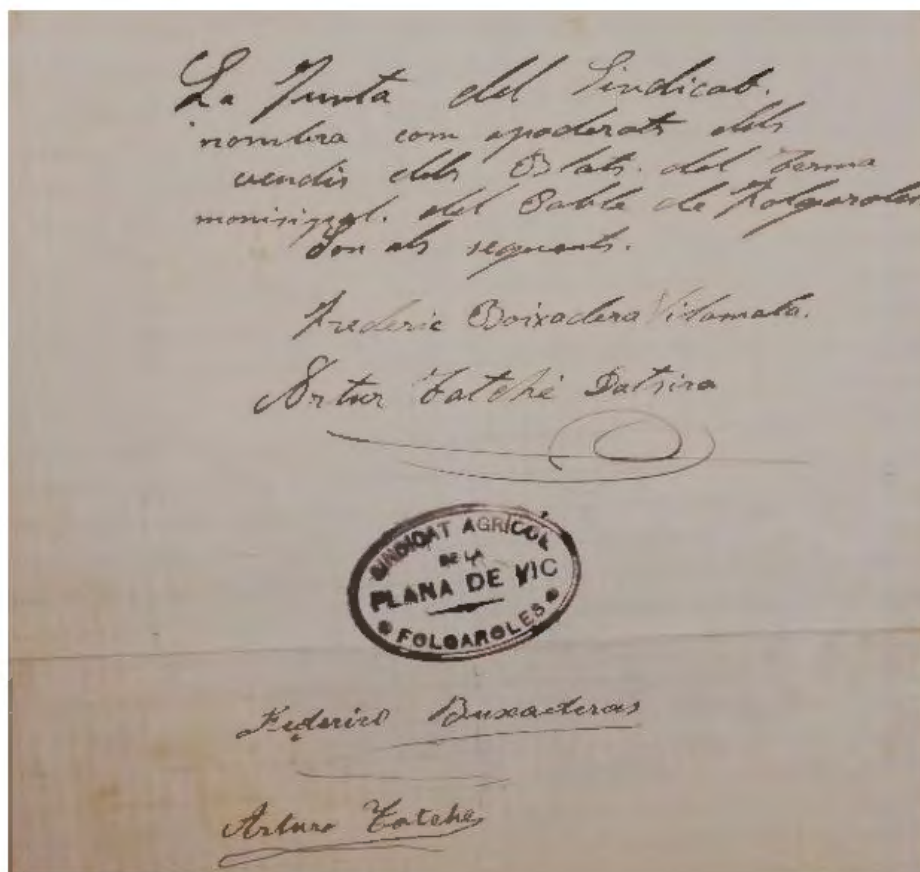 La Junta del Sindicat.
nombra com apoderats dels
vendis dels Blats. del Terma
monisippal. del Poble de Folgaroles
Son als seguents.
Frederic Boixadera Vilamala.
Artur Tatché Datsira
SINDICAT AGRICOL
DE LA
PLANA DE VIC
FOLGAROLES
Federico Buxaderas
Arturo Tatche